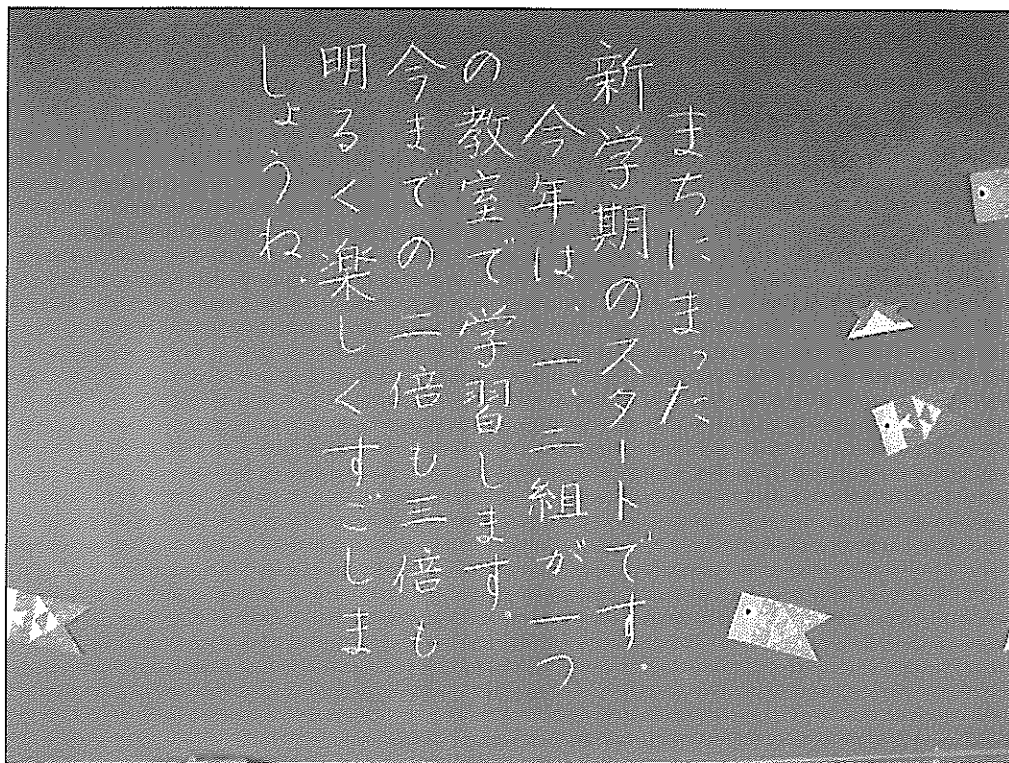 まちにまった
新学期のスタートです。
今年は、一、二組が一つ
の教室で学習します。
今までの二倍も三倍も
明るく楽しくすごしま
しょうね。